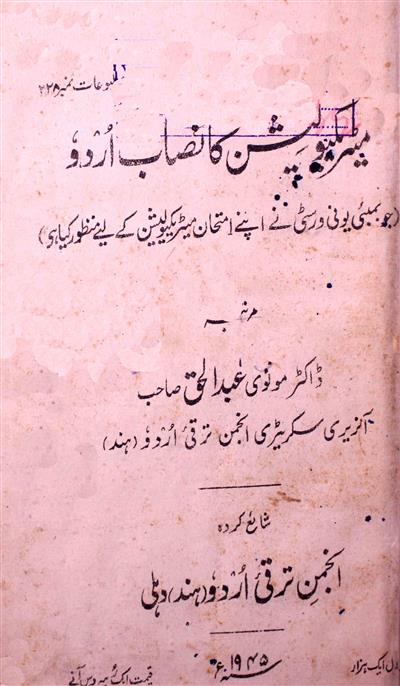 مطبوعات نمبر ۲۲۵
میٹریکیولیشن کا نصاب اُردو
(جو بمبئی یونی ورسٹی نے اپنے امتحان میٹریکیولیشن کے لیے منظور کیا ہی)
مرتبہ
ڈاکٹر مولوی عبدالحق صاحب
آنریری سکریٹری انجمن ترقیٔ اُردو (ہند)
شایع کردہ
انجمن ترقیٔ اُردو (ہند) دہلی
ایک ہزار
سنہ ۱۹۴۵ء
قیمت ایک رُپیہ دس آنے